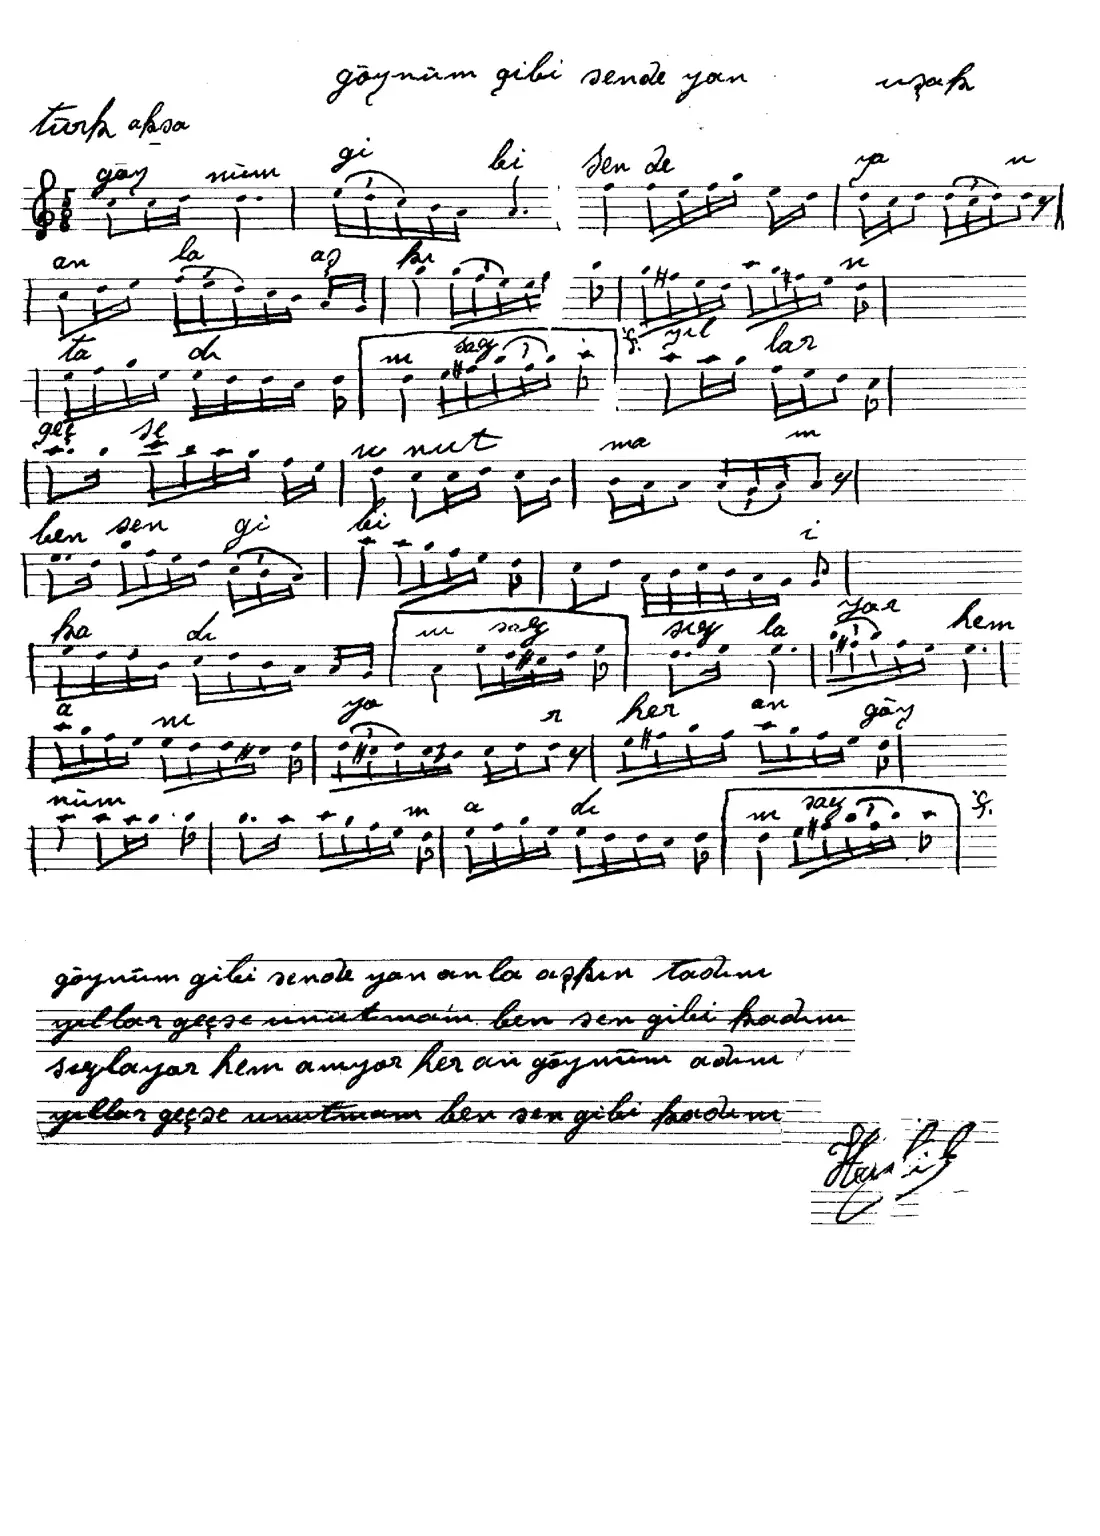 göynüm gibi sende yan uşak
türk aksa
göy nüm gi bi sen de ya n
an la aş kı n
ta dı m saz yıl lar
geç se u nut ma m
ben sen gi bi i
ka dı m saz sız la yor hem
a nı yo r her an göy
nüm m a dı m saz
göynüm gibi sende yan anla aşkın tadını
yıllar geçse unutmam ben sen gibi kadını
sızlayor hem anıyor her an göynüm adını
yıllar geçse unutmam ben sen gibi kadını